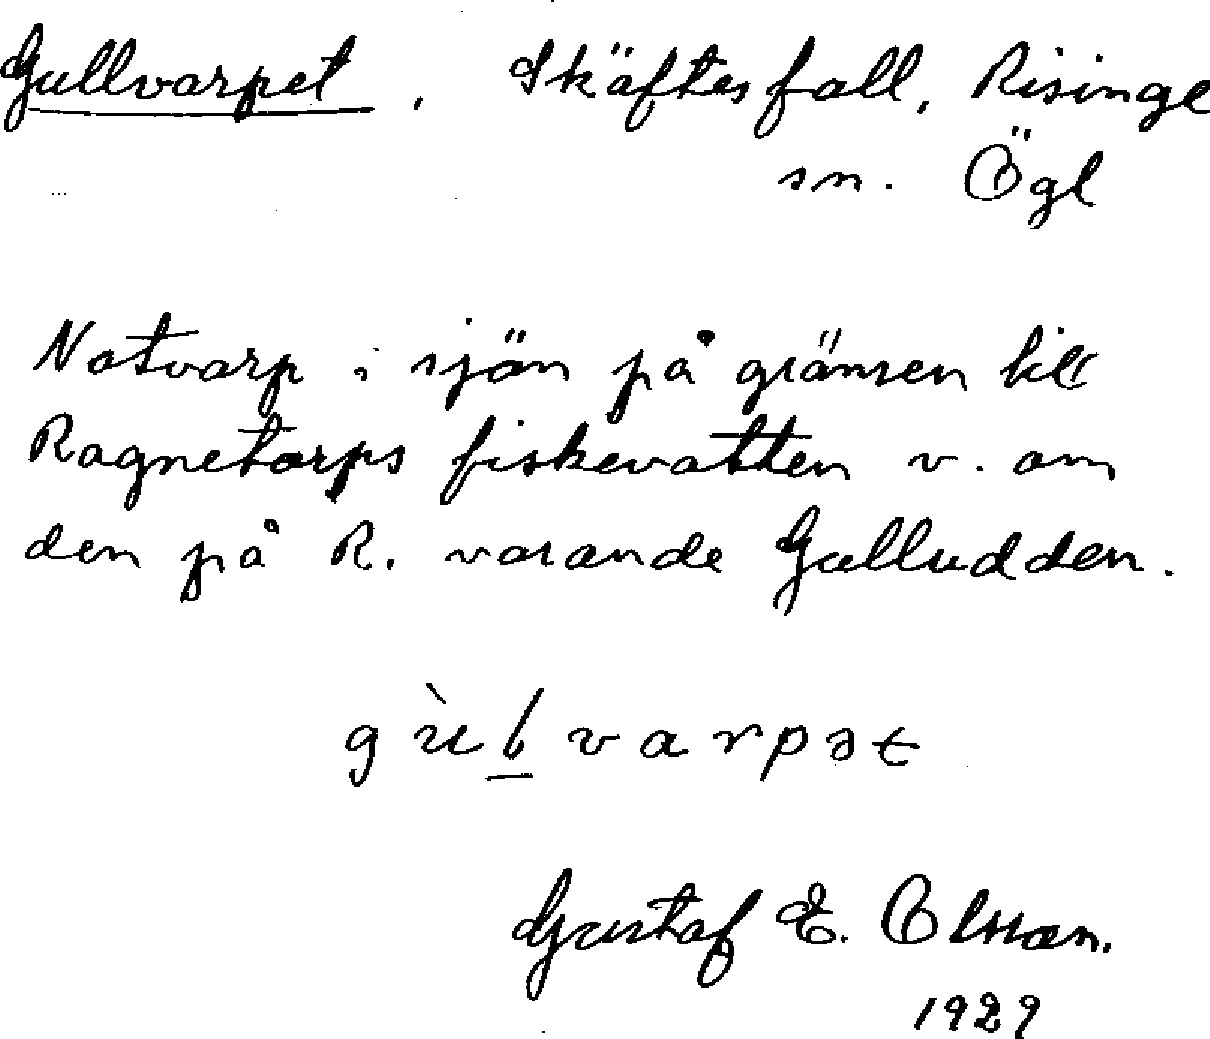 Gullvarpet, Skäftesfall, Risinge
sn. Ögl
Notvarp i sjön på gränsen till
Ragnetorps fiskevatten v. om
den på R. varande Gulludden.
gùlvarpət
Gustaf E. Olsson.
1929